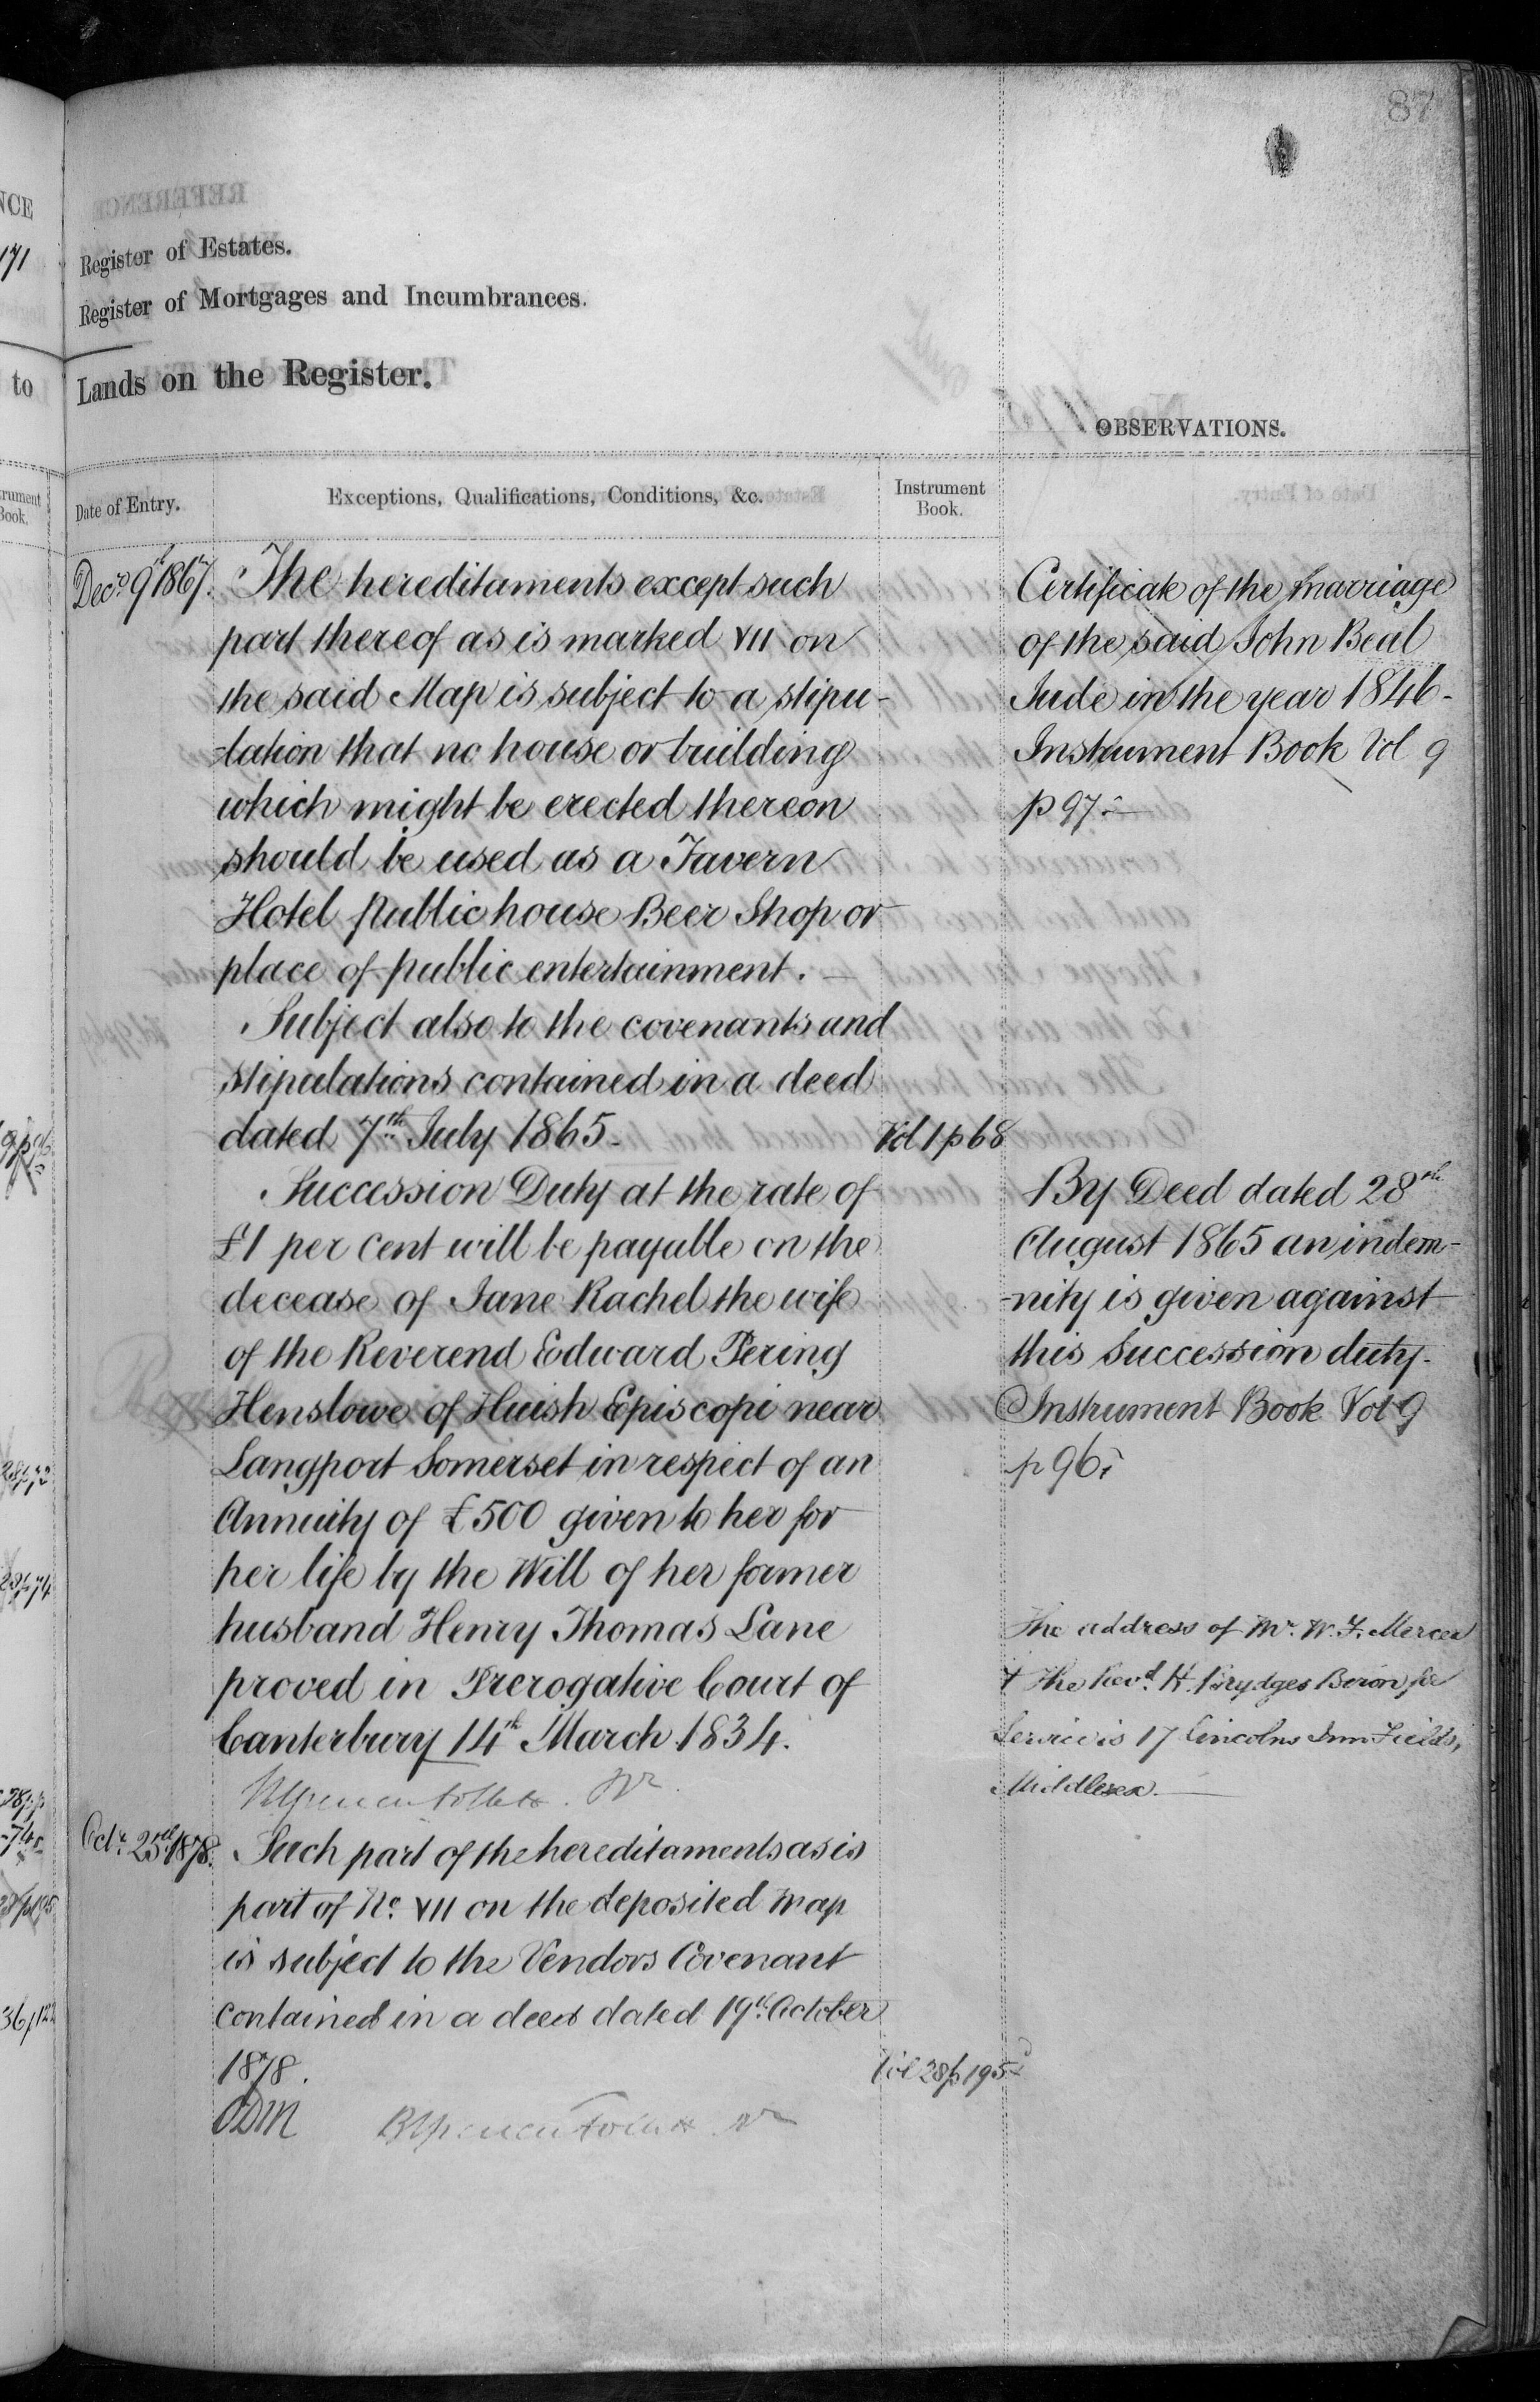 87
Register of Estates.
Register of Mortgages and Incumbrances.
Lands on the Register.
OBSERVATIONS.
Date of Entry.
Exceptions, Qualifications, Conditions, &c.
Instrument
Book.
Decr. 9th 1867.
The hereditaments except such
part thereof as is marked VII on
the said Map is subject to a stipu-
-lation that no house or building
which might be erected thereon
should be used as a Tavern
Hotel Public house Beer Shop or
place of public entertainment.
Subject also to the covenants and
stipulations contained in a deed
dated 7th July 1865.
Vol 1 p 68
Succession Duty at the rate of
£1 per cent will be payable on the
decease of Jane Rachel the wife
of the Reverend Edward Pering
Henslowe of Huish Episcopi near
Langport Somerset in respect of an
Annuity of £500 given to her for
her life by the Will of her former
husband Henry Thomas Lane
proved in Prerogative Court of
Canterbury 14th March 1834.
Octr. 25th 1878.
Such part of the hereditaments as is
part of No. VII on the deposited Map
is subject to the Vendors Covenant
contained in a deed dated 19th October
1878.
Vol 28 p 195
Certificate of the marriage
of the said John Beal
Jude in the year 1846-
Instrument Book Vol 9
p 97.
By Deed dated 28th
August 1865 an indem-
-nity is given against
this Succession duty.
Instrument Book Vol 9
p 96.
The address of Mr. W. F. Mercer
& The Revd. H. Brydges Biron for
Service is 17 Lincolns Inn Fields,
Middlesex.
NCE
171
to